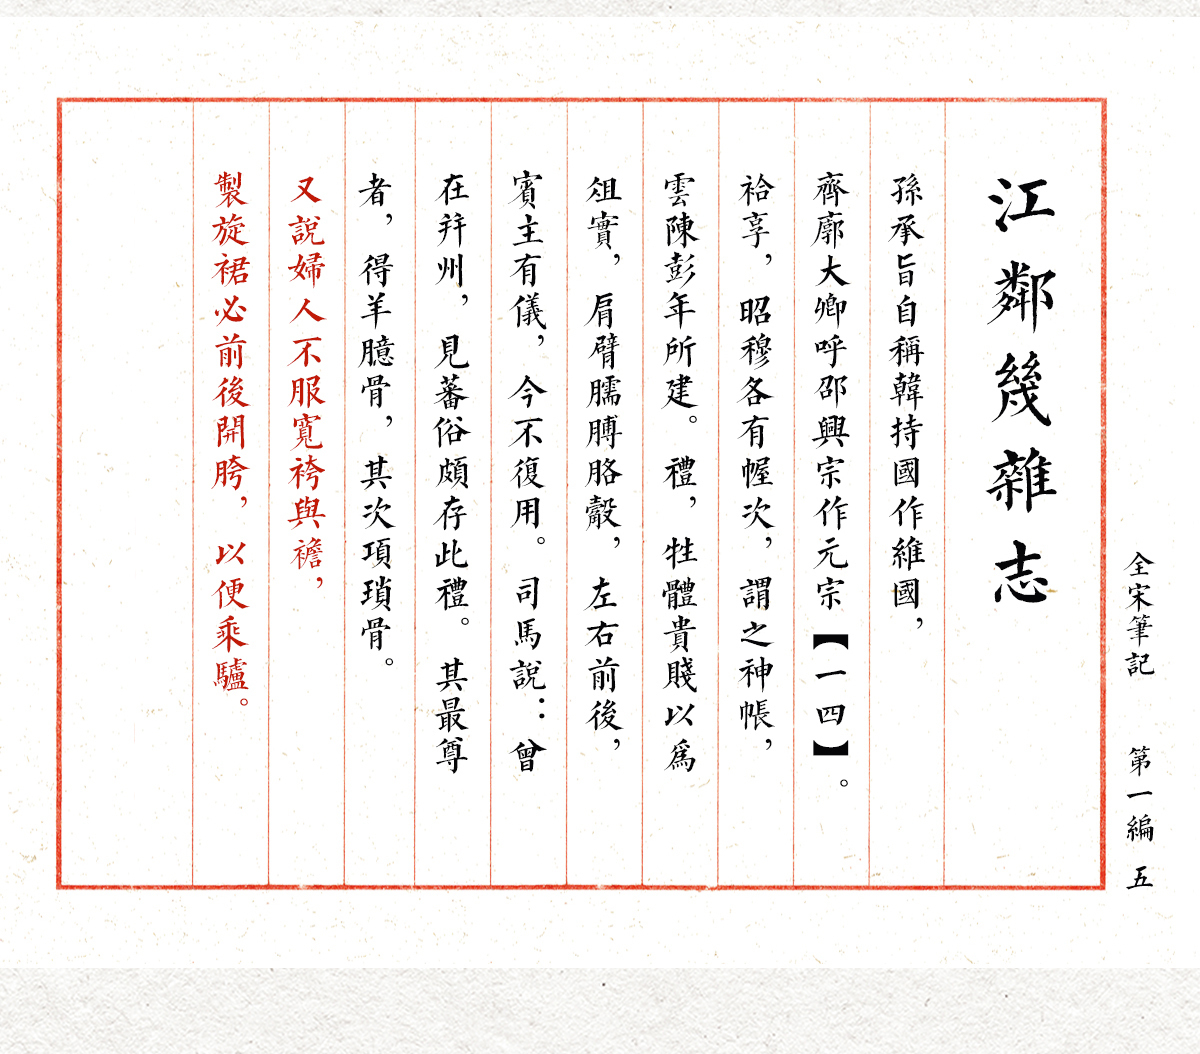 江鄰幾雜志
孫承旨自稱韓持國作維國，
齊廓大卿呼邵興宗作元宗【一四】。
袷享，昭穆各有幄次，謂之神帳，
雲陳彭年所建。禮，牲體貴賤以爲
俎實，肩臂臑膊胳㲉，左右前後，
賓主有儀，今不復用。司馬說：曾
在拜州，見蕃俗頗存此禮。其最尊
者，得羊臆骨，其次項瑣骨。
又說婦人不服寬袴與襜，
製旋裙必前後開胯，以便乘驢。
全宋筆記 第一編 五